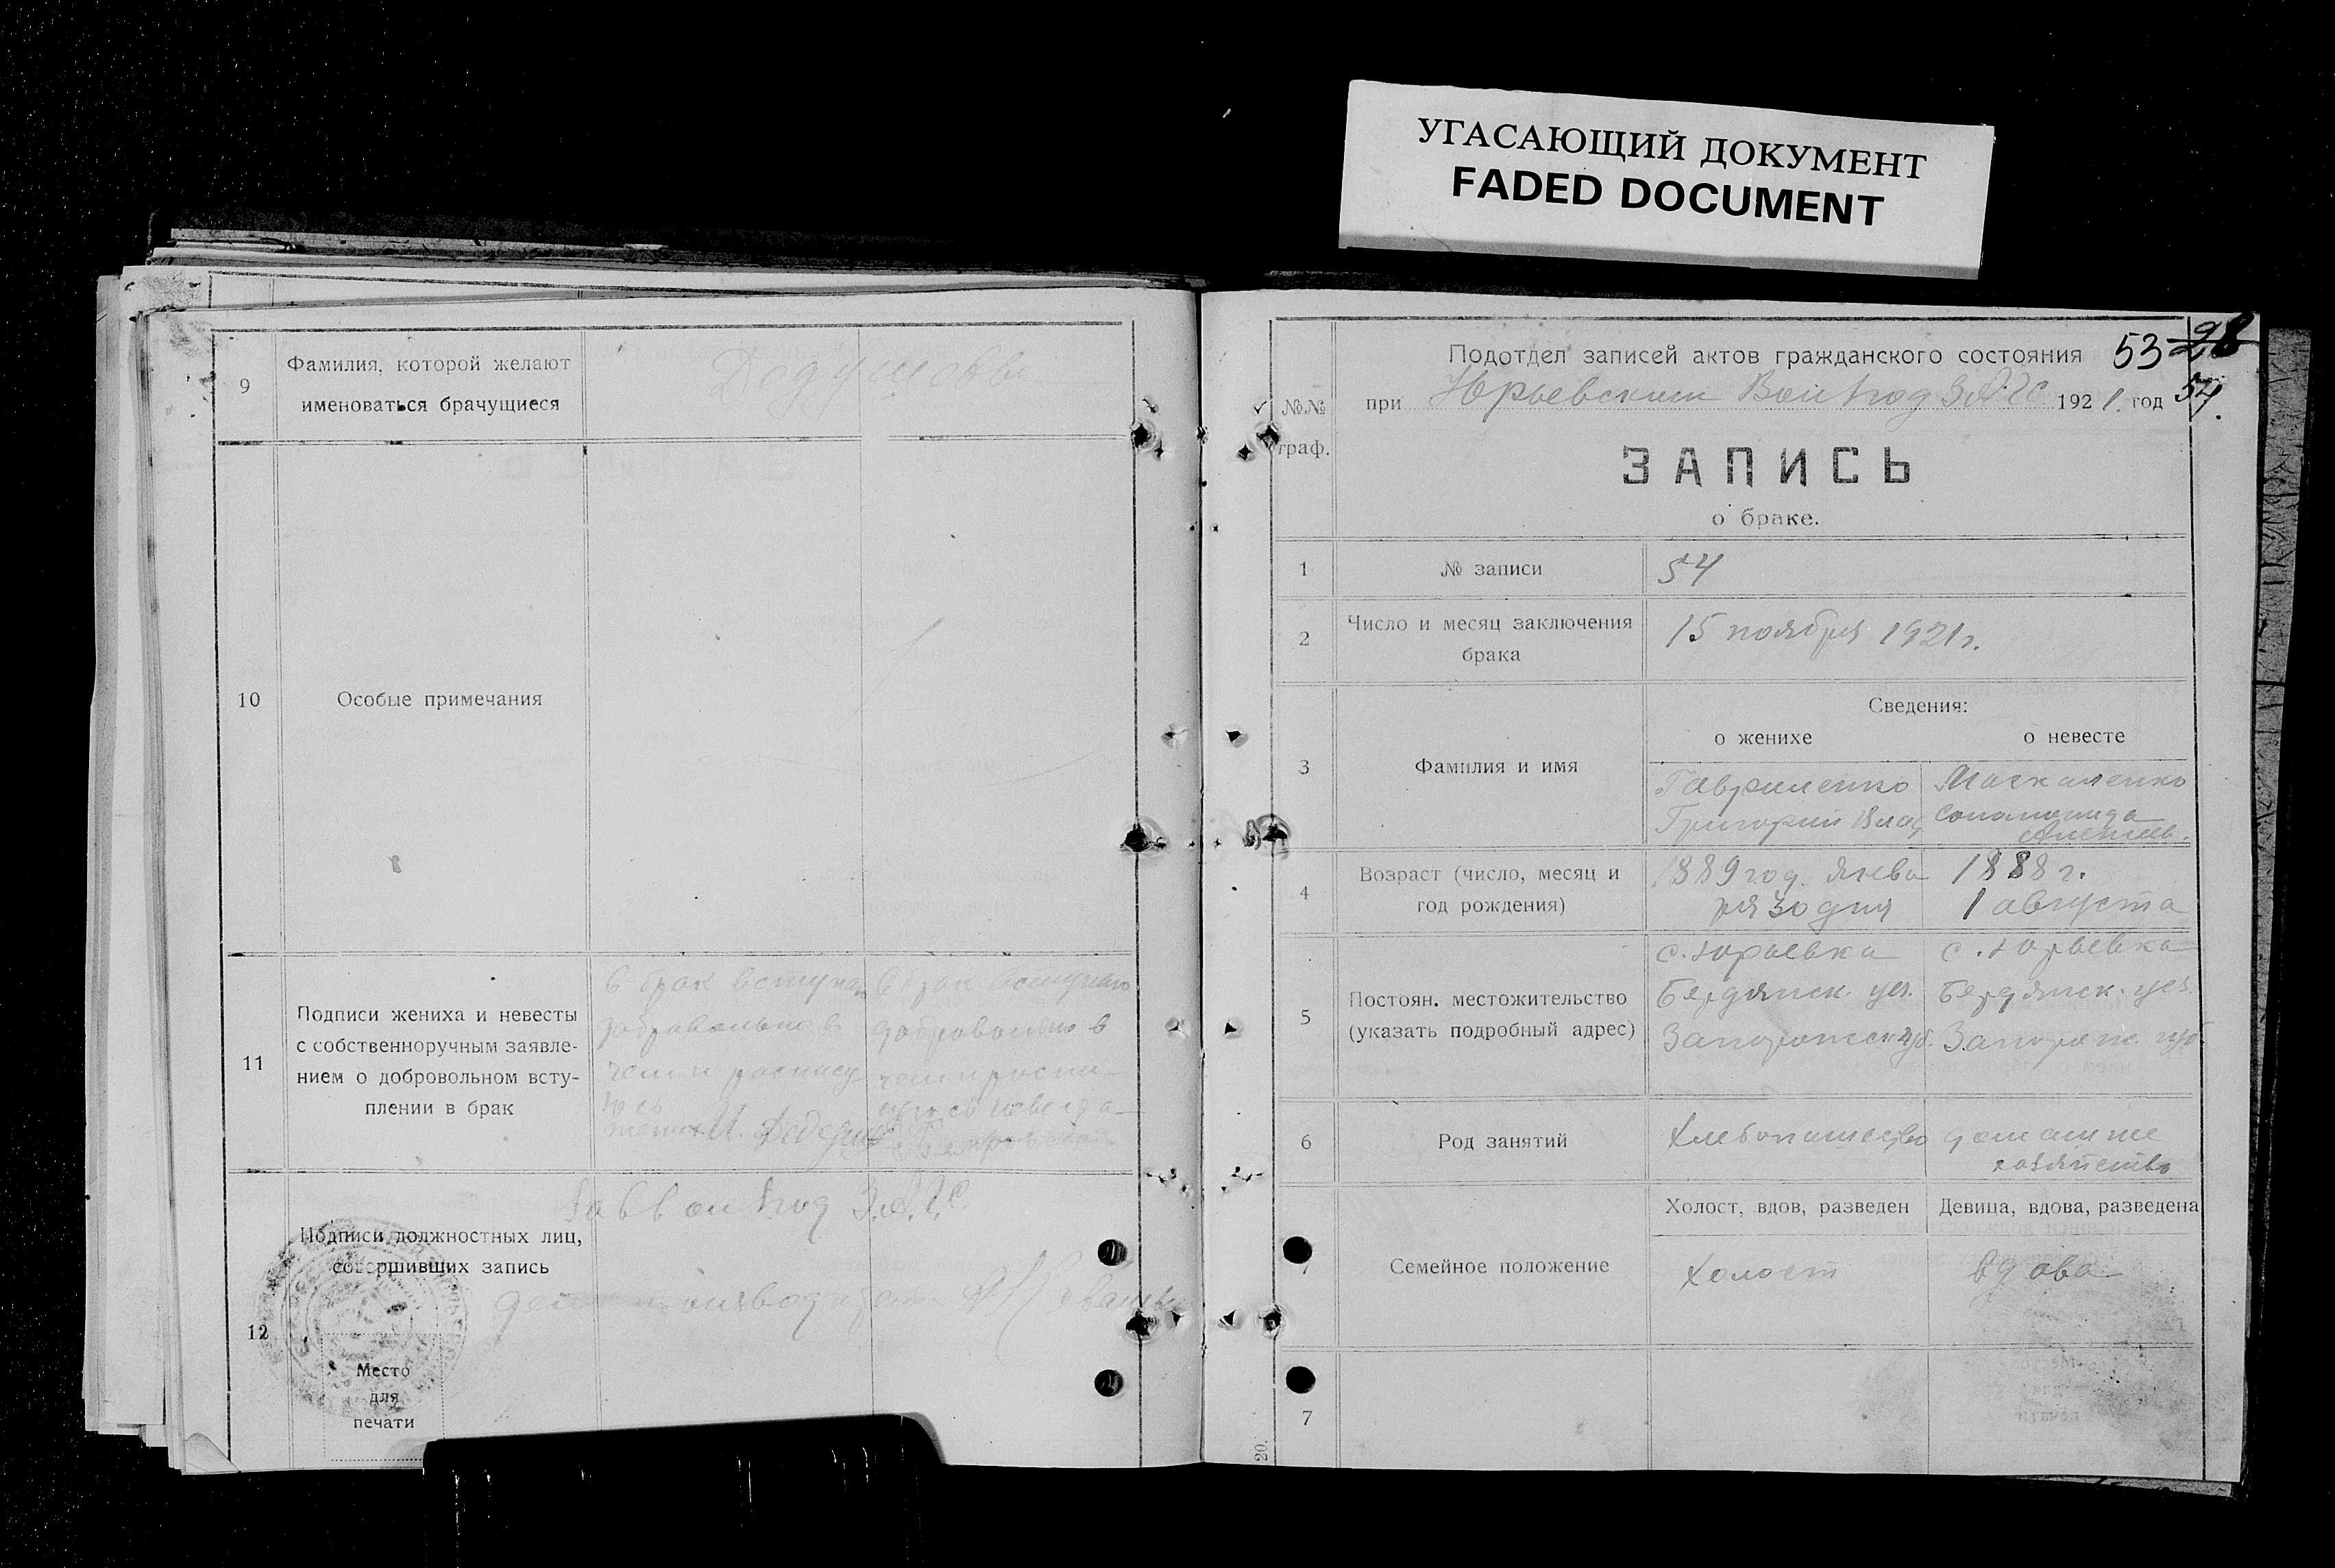 УГАСАЮЩИЙ ДОКУМЕНТ
FADED DOCUMENT
9
Фамилия, которой желают
именоваться брачущиеся
10
Особые примечания
11
Подписи жениха и невесты
с собственноручным заявле-
нием о добровольном всту-
плении в брак
в брак вступаю
добровольно в
чем и распису
юсь
в брак вступаю
добровольно в
чем и распи-
12
Подписи должностных лиц,
совершивших запись
З.А.Г.С.
Место
для
печати
№№
граф.
Подотдел записей актов гражданского состояния
53 28
при Юрьевским ЗАГС 1921 год
54.
ЗАПИСЬ
о браке.
1
№ записи
54
2
Число и месяц заключения
брака
15 ноября 1921 г.
3
Фамилия и имя
Сведения:
о женихе
о невесте
Гавриленко
Григорий Влад
Маскаленко
Соломонида
Алексеев.
4
Возраст (число, месяц и
год рождения)
1889 год. янва
ря 30 дня
1888 г.
1 августа
5
Постоян. местожительство
(указать подробный адрес)
с. Юрьевка
Бердянск. уез.
Запорожск губ.
с. Юрьевка
Бердянск. уез.
Запорож. губ.
6
Род занятий
Хлебопашество
домашнее
хозяйство
7
Семейное положение
Холост, вдов, разведен
Девица, вдова, разведена
холост
вдова
7
20.